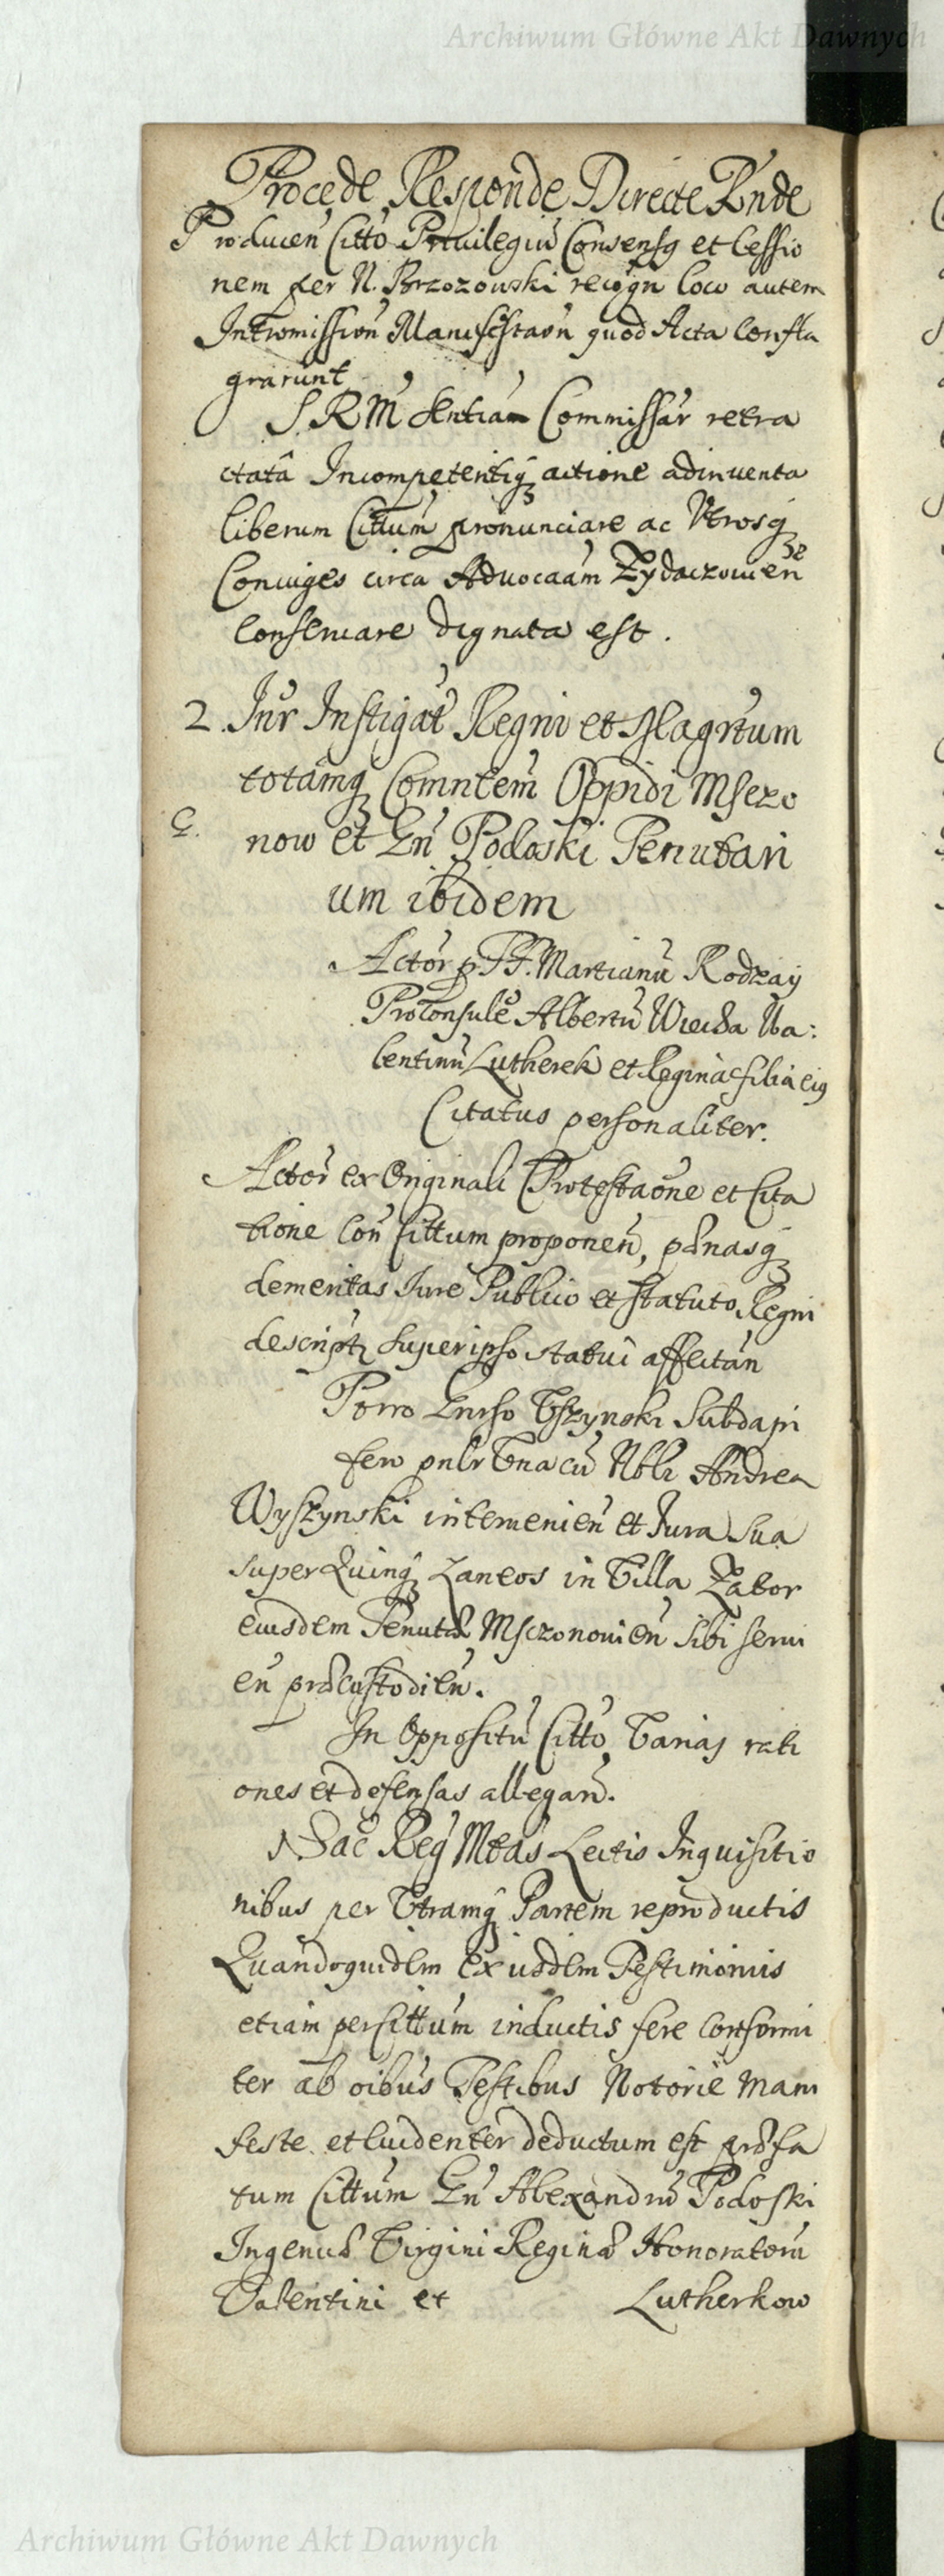 Archiwum Główne Akt Dawnych
Procede Responde Directe Rnde
Producen Citto Privilegiu Consensq et Cessio
nem per N. Brzozowski recogn loco autem
Intromission Manifestaon quod Acta Confla
grarunt
S. R M Sentiam Commissar retra
ctatâ Incompetentiq actione adinventa
liberum Cittum pronunciare ac Vtrosq
Coniuges circa Advocaam Zydaczowien
se
Conservare dignata est.
2. Inr Instigat Regni et Flagrtum
totamq Comntem Oppidi Msczo
now et Gn Podoski Tenutari
um ibidem
Actor p FF. Martianu Rodzay
Proconsule Albertu Wiecha Va:
lentinu Lutherek et Regina filia eiq
Citatus personaliter.
Actor ex Originali Protestaone et Cita
tione Con Cittum proponen, pænasq
demeritas Iure Publico et Statuto Regni
descriptq super ipso statui affectan
Porro Gnrso Tszynski Subdapi
fero pnlr Vna cu Nbli Andrea
Wyszynski intervenien et Jura Sua
super Quinq Laneos in Villa Zabor
eiusdem Tenutæ Msczonovien sibi servi
en præcustodien.
In Oppositu Citto Varias rati
ones et defensas allegan.
Sac Reg Mtas Lectis Inquisitio
nibus per Vtramq Partem reproductis
Quandoquidem ex iisdem Testimoniis
etiam per Cittum inductis fere Conformi
ter ab oibus Testibus Notorie Mani
feste et Evidenter deductum est præfa
tum Cittum Gn Alexandru Podoski
Ingenuæ Virgini Reginæ Honoratoru
Valentini et Lutherkow
Archiwum Główne Akt Dawnych